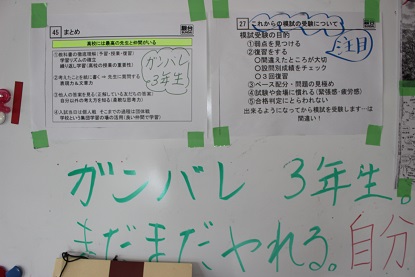 45 まとめ
高校には最高の先生と仲間がいる
①教科書の徹底理解（予習・授業・復習）
学習リズムの確立
繰り返し学習（高校の授業の重要性）
②考えたことを紙に書く ⇒ 先生に質問する
表現力も出来る
③他人の答案を見る（正解している友だちの答案）
自分以外の考え方を知る（柔軟な思考力）
④入試当日は個人戦　そこまでの過程は団体戦
学校という集団学習の場の活用（良い仲間で学習）
ガンバレ
3年生
27 これからの模試の受験について
注目
模試受験の目的
①弱点を見つける
②復習をする
○間違えたところが大切
○設問別成績をチェック
○3回復習
③ペース配分・問題の見極め
④試験や会場に慣れる（緊張感・疲労感）
⑤合格判定にとらわれない
出来るようになってから模試を受験します…は
間違い！
ガンバレ 3年生。
まだまだやれる。自分